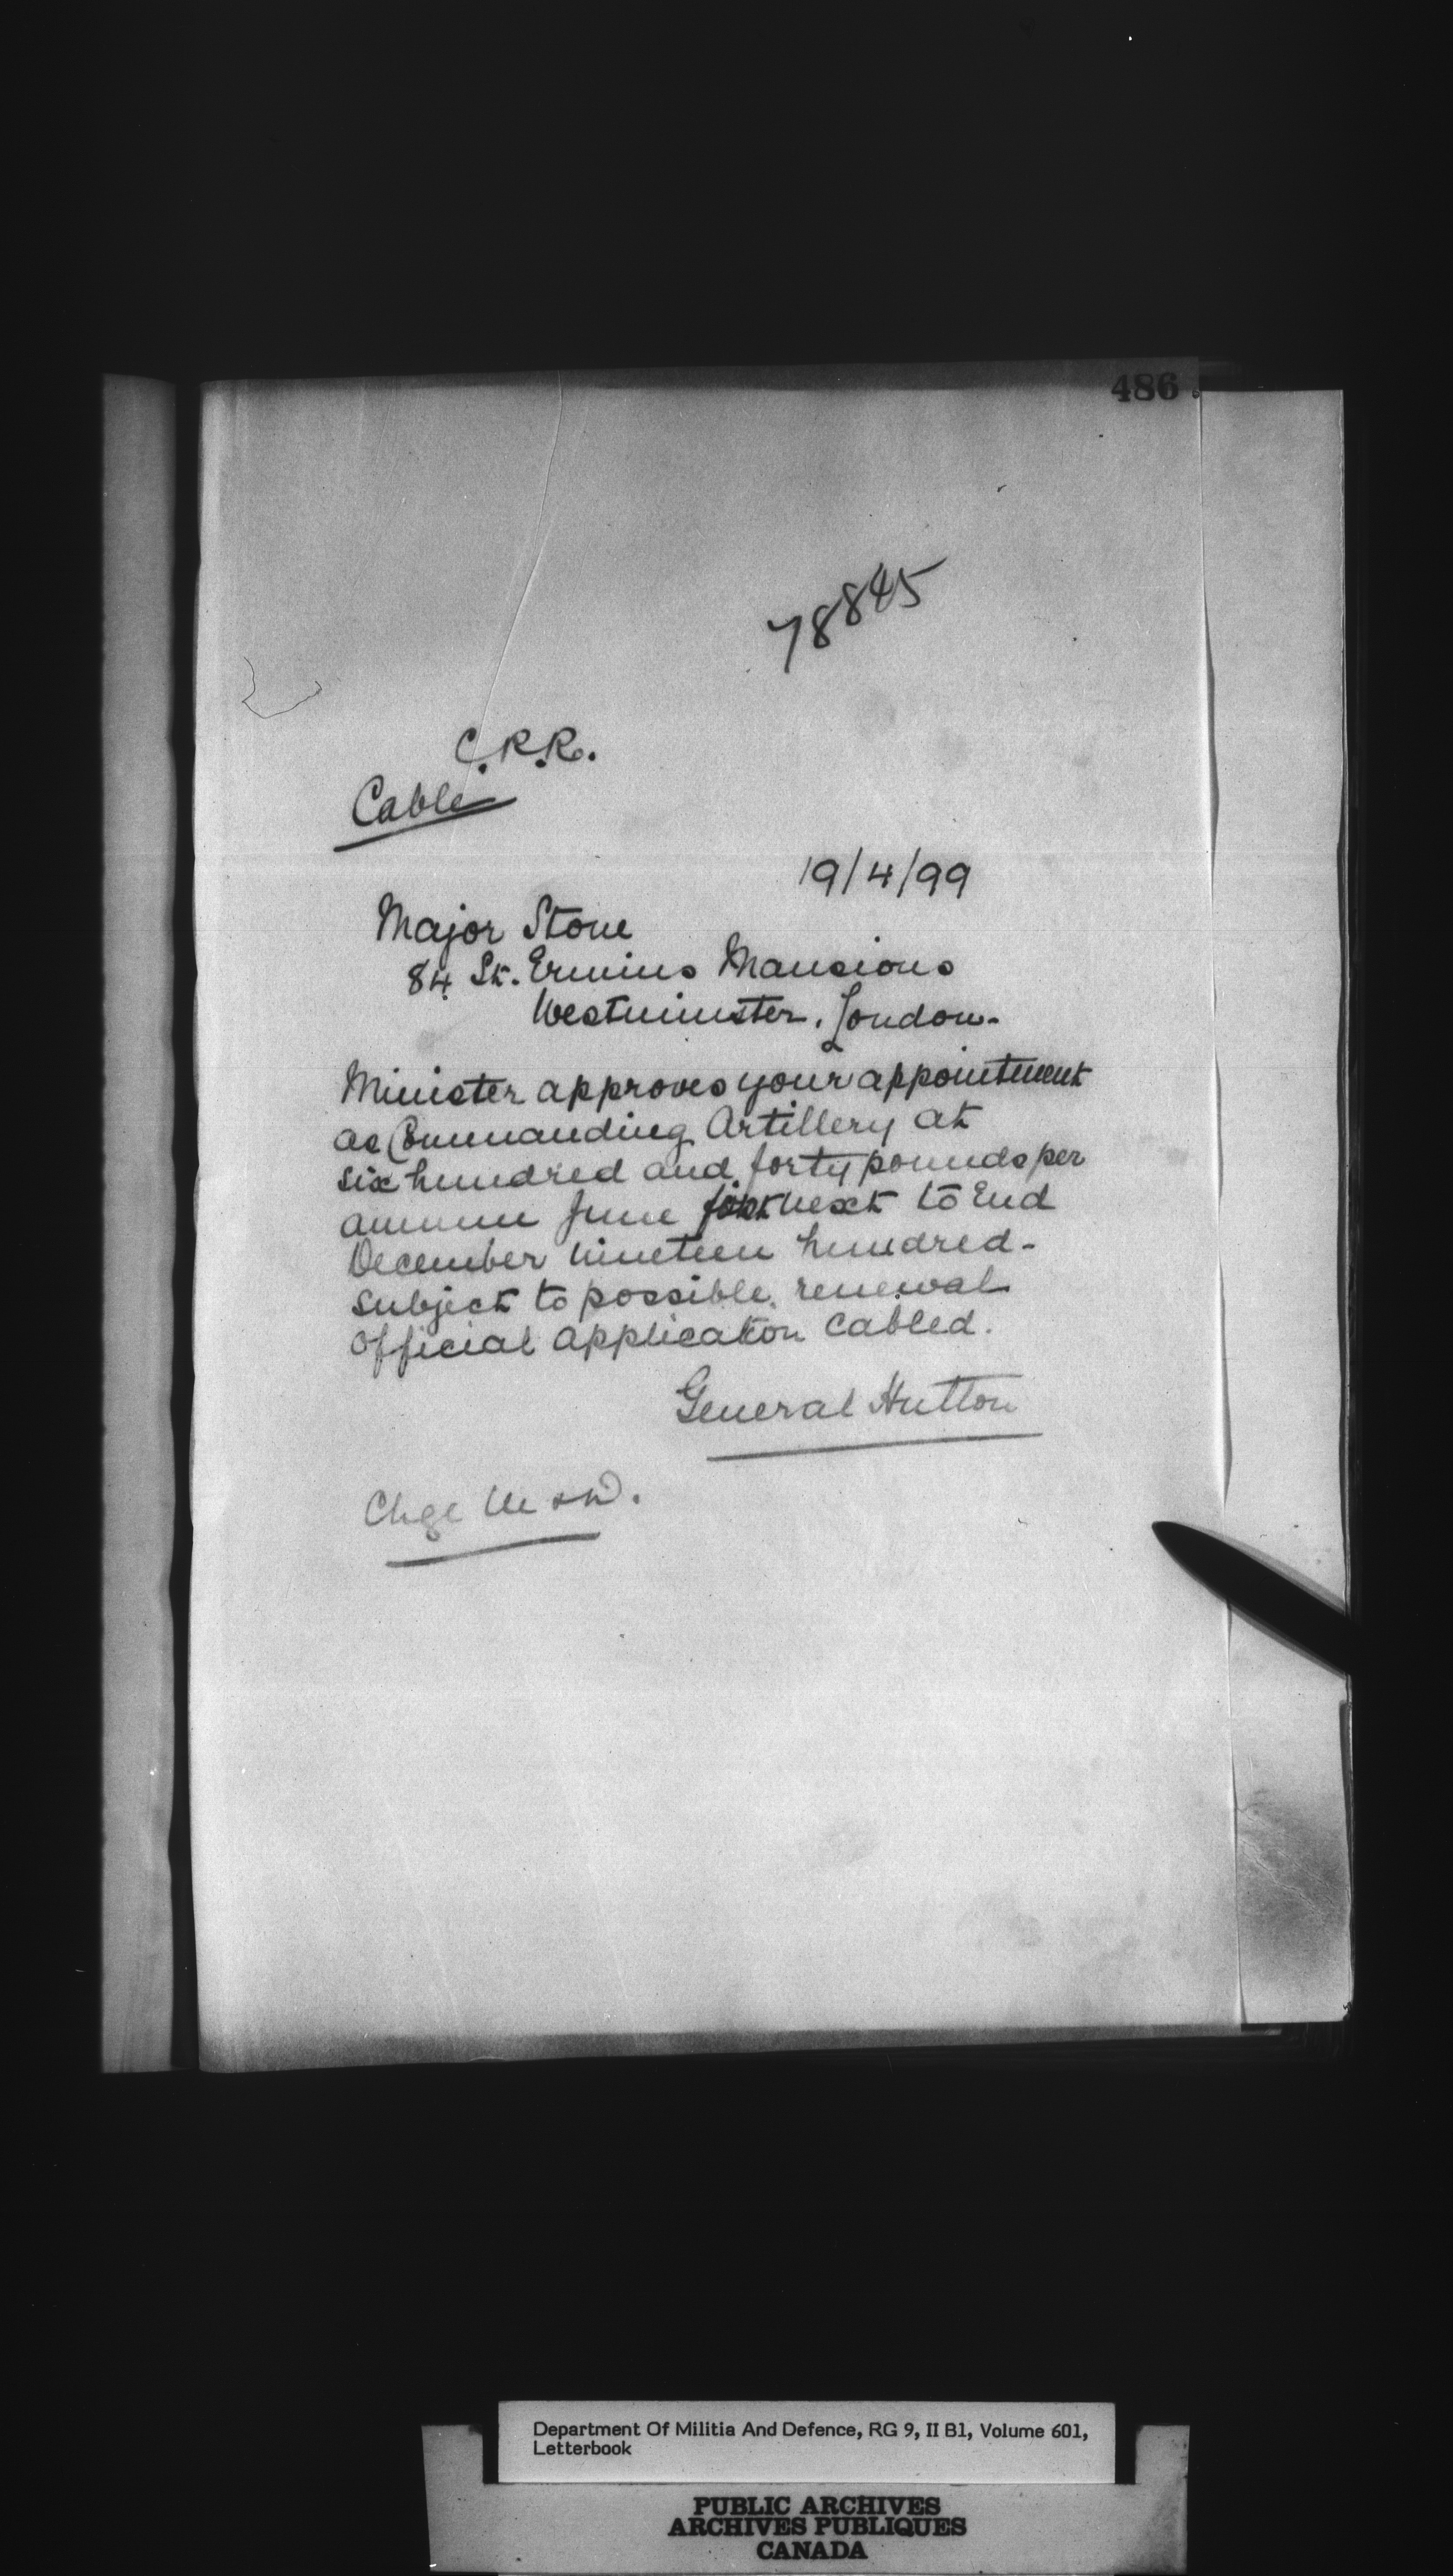 486
78845
C.R.R.
Cable
19/4/99
Major Stone
84 St. Ermins Mansions
Westminster, London-
Minister approves your appointment
as Commanding Artillery at
six hundred and forty pounds per
annum June first next to End
December nineteen hundred-
subject to possible renewal
Official Application Cabled.
General Hutton
Chge M & D.
Department Of Militia And Defence, RG 9, II B1, Volume 601,
Letterbook
PUBLIC ARCHIVES
ARCHIVES PUBLIQUES
CANADA